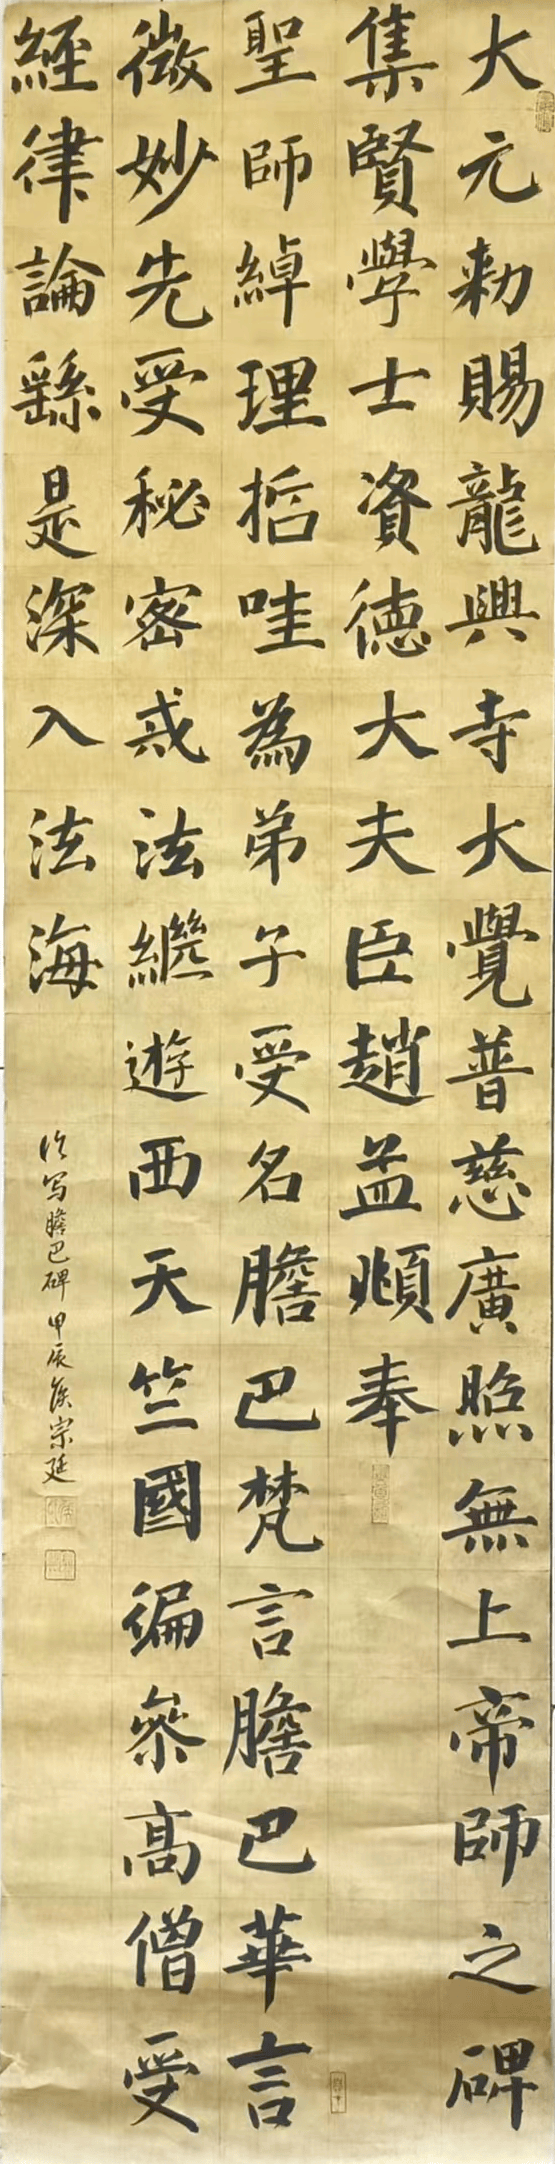 大元勅賜龍興寺大覺普慈廣照無上帝師之碑
集賢學士資德大夫臣趙孟頫奉
聖師綽理哲哇為弟子受名膽巴梵言膽巴華言
微妙先受秘密戒法繼遊西天竺國徧參高僧受
經律論繇是深入法海
临写膽巴碑 甲辰 侯宗廷